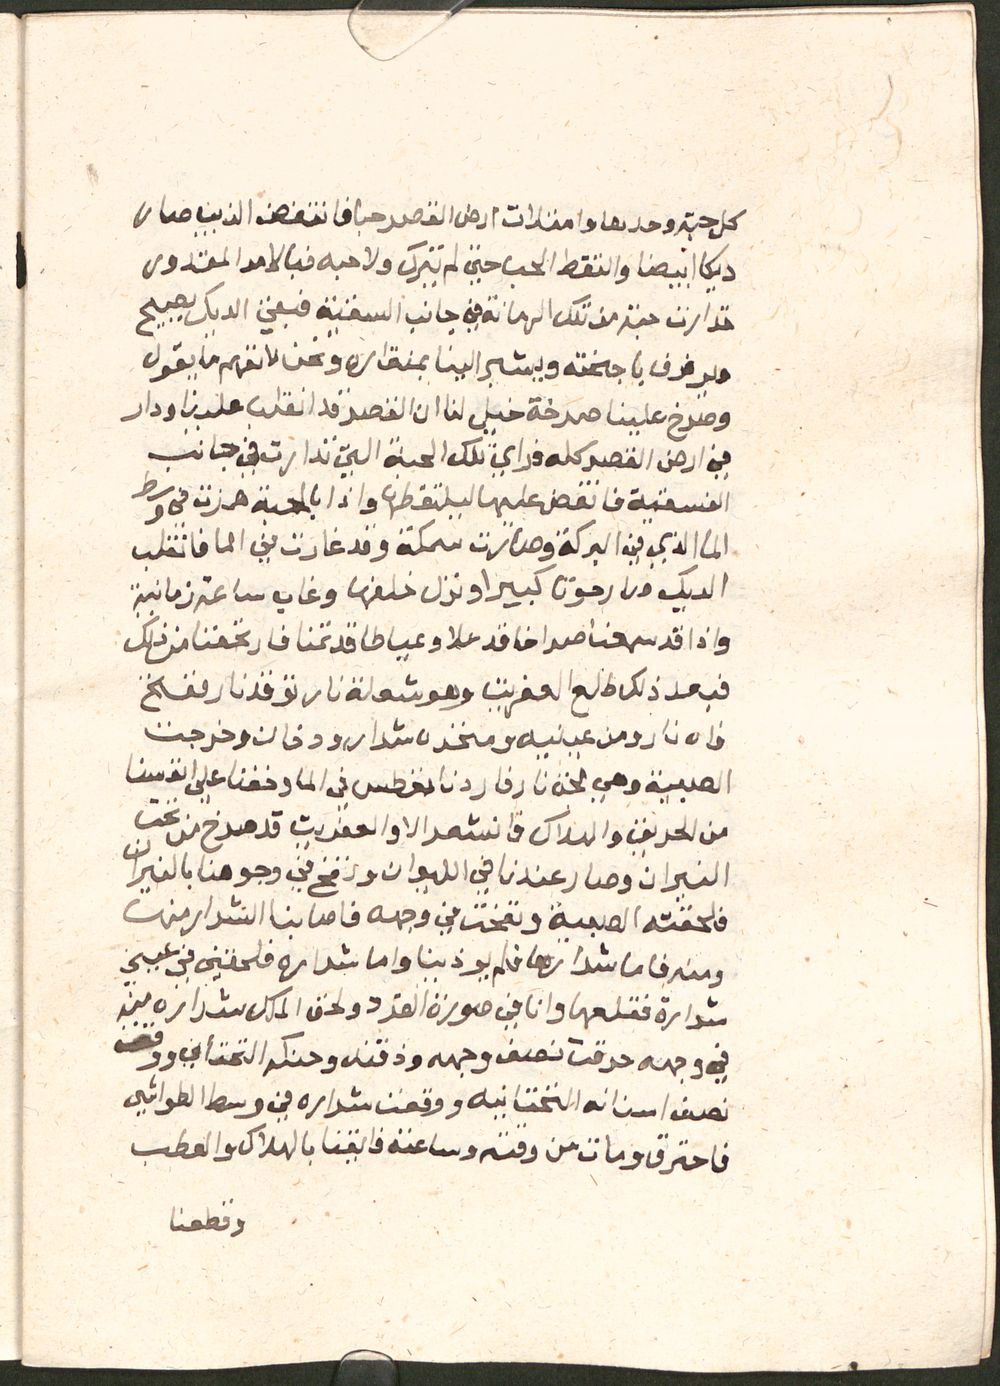 كل حبة وحدها وامتلات ارض القصر حبا فانتفض الذيب صار
ديكا ابيضا والتقط الحب حتي لم يترك ولا حبه فبالامر المقدور
تدارت حبة من تلك الرمانة في جانب الفسقية فبقي الديك يصيح
ويرفرف باجنحته ويشير الينا بمنقاره ونحن لا نفهم ما يقول
وصرخ علينا صرخة خيل لنا ان القصر قد انقلب علينا ودار
في ارض القصر كله فراي تلك الحبة التي تدارت في جانب
الفسقية فانقض عليها ليلتقطها واذا بالحبة مرقت في وسط
الما الذي في البركة وصارت سمكة وقد غارت في الما فانقلب
الديك صار حوتا كبيرا ونزل خلفها وغاب ساعة زمانية
واذا قد سمعنا صراخا قد علا وعياطا قد تمنا فارتجفنا من ذلك
فبعد ذلك طلع العفريت وهو شعلة نار توقد نار ففتح
فاه نار ومن عينيه ومنخره شرار ودخان وخرجت
الصبية وهي لجة نار فاردنا نغطس في الما وخفنا علي انفسنا
من الحريق والهلاك فما نشعر الا والعفريت قد صرخ من تحت
النيران وصار عندنا في الليوان ونفخ في وجوهنا بالنيران
فلحقته الصبية ونفخت في وجهه فاصابنا الشرار منها
ومنه فاما شرارها فلم يوذينا واما شراره فلحقتني في عيني
شرارة فقلعها وانا في صورة القرد ولحق الملك شراره منه
في وجهه حرقت نصف وجهه وذقنه وحنكه التحتاني ووقعت
نصف اسنانه التحتانيه ووقعت شراره في وسط الطواشي
فاحترق ومات من وقته وساعته فايقنا بالهلاك والعطب
وقطعنا